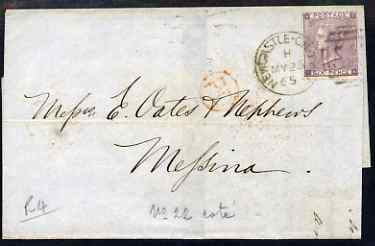 POSTAGE
NEWCASTLE
H
MY 2
65
SIX PENCE
Messrs E. Oates & Nephews
Messina.
R4
No 22 coté